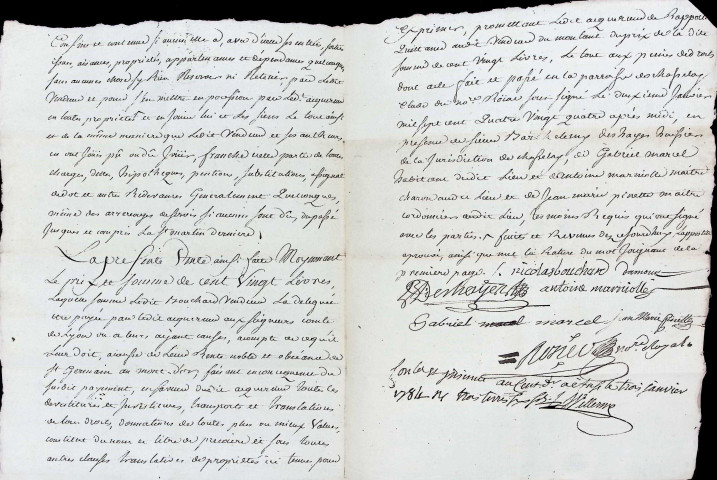 Confine et continue si aucune elle a, avec d'une ses entrées sorties
issues, aisances, propriétés, appartenances et dependances quelconques,
sans aucunes choses y Rien Reserver ni Retenir par ledit
Vendeur et pour s'en mettre en possession par led. acquereur
en toute propriété et en jouir lui et les siens Le tout ainsi
et de la même maniere que Ledit Vendeur et ses auteurs
en ont joui pu ou du jouir, franche vente partie de toutes
charges, dettes, hipotheques, pentions, substitutions,
dedot et autres Redevances Generalement Quelconques,
même des arrerages de servis si aucuns sont dus du passé
jusques et compris La St martin derniere.
La presente Vente ainsi faite Moyennant
Le prix et somme de cent Vingt Livres,
Laquelle somme Ledit Bouchard Vendeur La deleguée
être payée par ledit acquereur aux seigneurs comte
de Lyon ou a leurs ayant causes, acompte de ce qu'il
leur doit, a cause de Leur Rente noble et obeiance de
St Germain au mont d'or, faisant en consequence du
susdit payement, en faveur dudit acquereur toutes les
devestitures et Investitures, transports et translations
de tous droits, donnations de toutes plus ou mieux Values,
constitué du nom et titre de precaire et sous toutes
autres clauses translatives de propriété ici tenues pour
exprimées, promettant Ledit acquereur de Rapporter
Quittance audit Vendeur du montant du prix de la dite
somme de cent Vingt Livres, Le tout aux peines de droits
dont acte fait et passé en la parroisse de chasselay
etude du no.re Roial sous signé Le deuxieme Janvier
mil sept cent Quatre Vingt quatre après midi, en
presence de sieur Barthelemy des hayes huissier
de la Jurisdiction de chasselay, de Gabriel marcel
habitant dudit Lieu et d'antoine marniolle maître
charon audit Lieu et de Jean marie pinette maitre
cordonnier audit Lieu temoins Requis qui ont signé
avec les parties.
approuvé, ainsi que la Rature du mot joignant de la
premiere page. nicolas bouchard
Deshayes antoine marniolle
Gabriel marcel Jean Marie pinette
no.re Royal
au Cent d. a le trois janvier
1784 trois livres